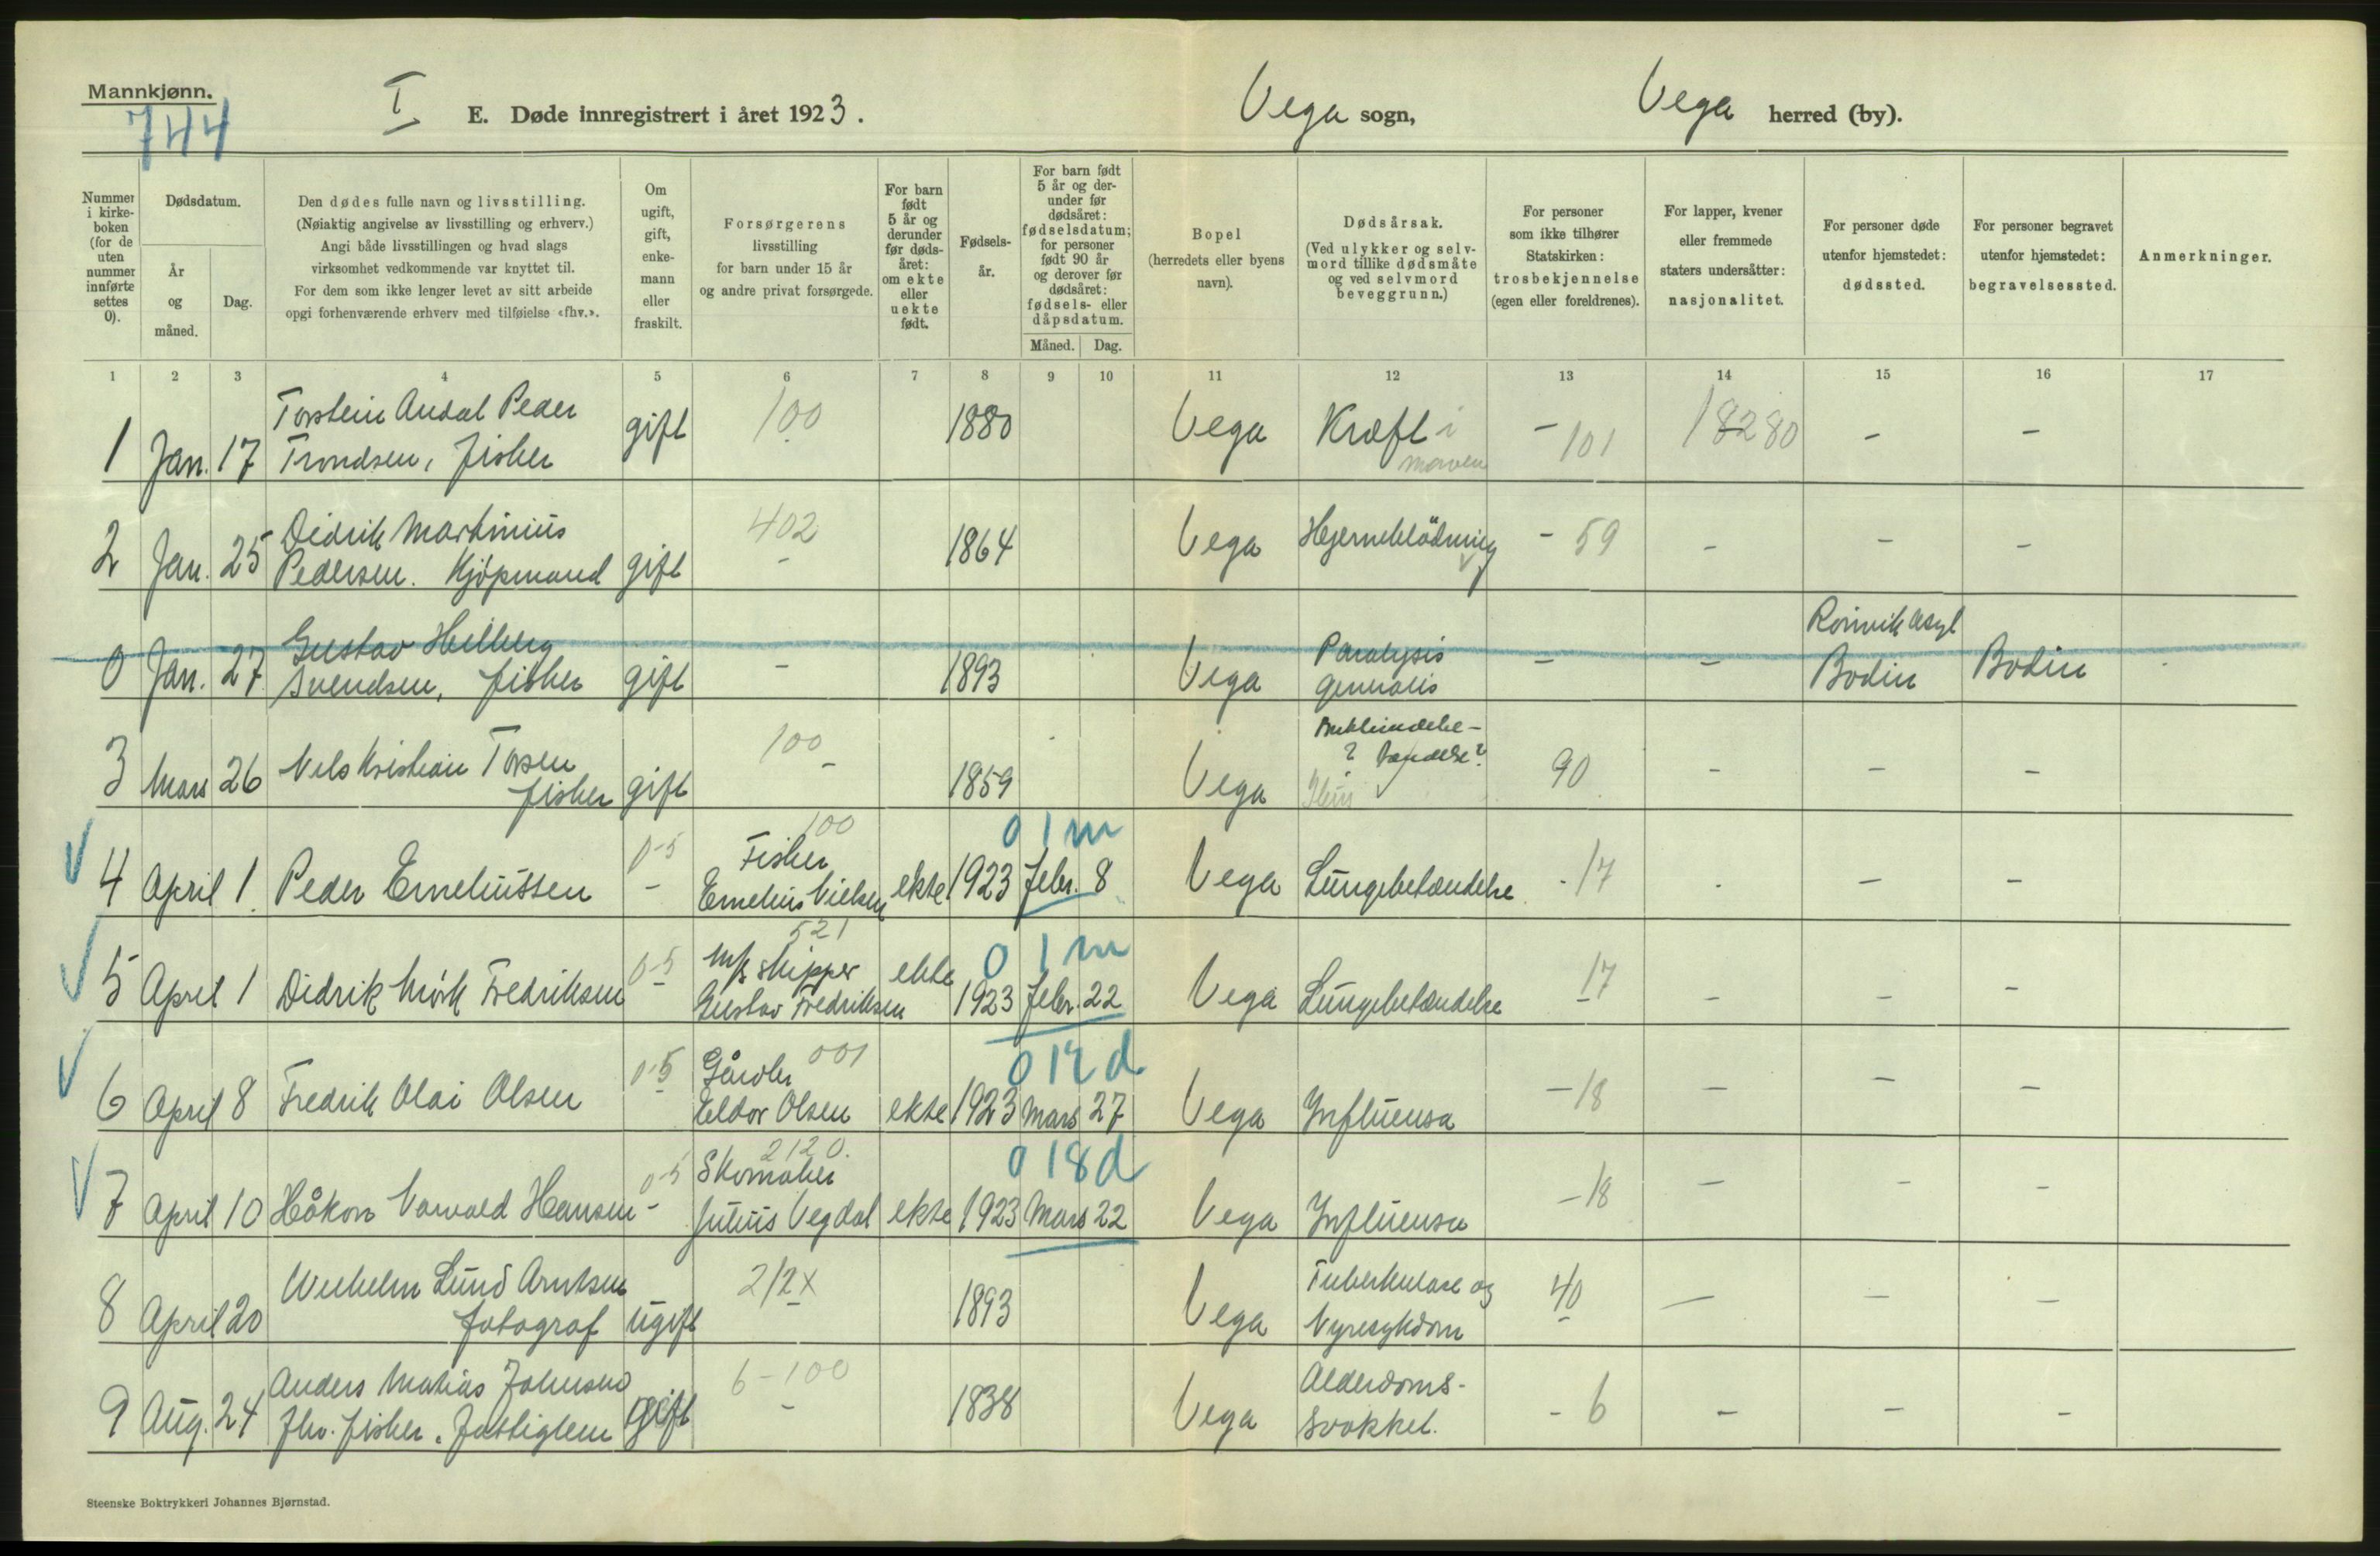 Mannkjønn.
744
I
E. Døde innregistrert i året 1923.
Vega sogn,
Vega herred (by).
Nummer i kirke-boken (for de uten nummer innførte settes 0).
Dødsdatum.
År og måned.
Dag.
Den dødes fulle navn og livsstilling.
(Nøiaktig angivelse av livsstilling og erhverv.)
Angi både livsstillingen og hvad slags
virksomhet vedkommende var knyttet til.
For dem som ikke lenger levet av sitt arbeide
opgi forhenværende erhverv med tilføielse «fhv.».
Om ugift, gift, enke-mann eller fraskilt.
Forsørgerens
livsstilling
for barn under 15 år
og andre privat forsørgede.
For barn født 5 år og derunder før døds-året: om ekte eller uekte født.
Fødsels-år.
For barn født 5 år og der-under før dødsåret: fødselsdatum; for personer født 90 år og derover før dødsåret: fødsels- eller dåpsdatum.
Måned.
Dag.
Bopel
(herredets eller byens
navn).
Dødsårsak.
(Ved ulykker og selv-
mord tillike dødsmåte
og ved selvmord
beveggrunn.)
For personer
som ikke tilhører
Statskirken:
trosbekjennelse
(egen eller foreldrenes).
For lapper, kvener
eller fremmede
staters undersåtter:
nasjonalitet.
For personer døde
utenfor hjemstedet:
dødssted.
For personer begravet
utenfor hjemstedet:
begravelsessted.
Anmerkninger.
1 2 3 4 5 6 7 8 9 10 11 12 13 14 15 16 17
Torstein Andal Peder
1 Jan. 17 Trondsen, Fisker gift 100 1880 Vega Kræft i - 101 18280 - -
maven
Didrik Martinius 402
2 Jan. 25 Pedersen. Kjøpmand gift - 1864 Vega Hjerneblödning - 59 - - -
Gustav Helberg Paralysis Rönvik Asyl
0 Jan. 27 Svendsen, fisker gift - 1893 Vega generalis - - Bodin Bodin
100
3 Mars 26 Nels Kristian Torsen
fisker gift - 1859 Vega Ileus 90 - - -
100 0 1 m
0-5 Fisker
4 April 1. Peder Erneliussen - Ernelius Nielsen ekte 1923 Febr. 8 Vega Lungebetændelse - 17 - -
521 0 1 m
0-5 M/k skipper ekte
5 April 1 Didrik Mörk Fredriksen - Gustav Fredriksen 1923 Febr. 22 Vega Lungebetændelse 17 - - -
001 0 12 d
0-5 Gårdbr
6 April 8 Fredrik Olai Olsen - Eldor Olsen ekte 1923 Mars 27 Vega Influensa - 18 - - -
2120. 0 18 d
0-5 Skomaker
7 April 10 Håkon Varvald Hansen - Julius Vegdal ekte 1923 Mars 22 Vega Influensa - 18 - - -
Wilhelm Lund Arntsen 212x Tuberkulose og
8 April 20 fotograf ugift 1893 Vega Nyresykdom 40 - - -
Anders Matias Johnsen 6-100 Alderdoms-
9 Aug. 24 Fhv. fisker. Fattiglem gift - 1838 Vega svakket. - 6 - - -
Steenske Boktrykkeri Johannes Bjørnstad.